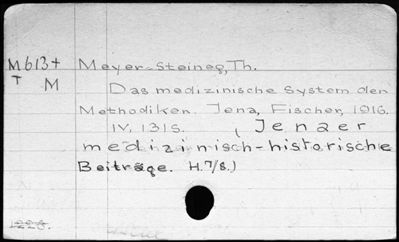 M613+ Meyer-Steineg, Th.
T M Das medizinische System der
Methodiker. Jena, Fischer, 1916.
IV, 131S. (Jenaer
medizinisch-historische
Beiträge. H.7/8.)